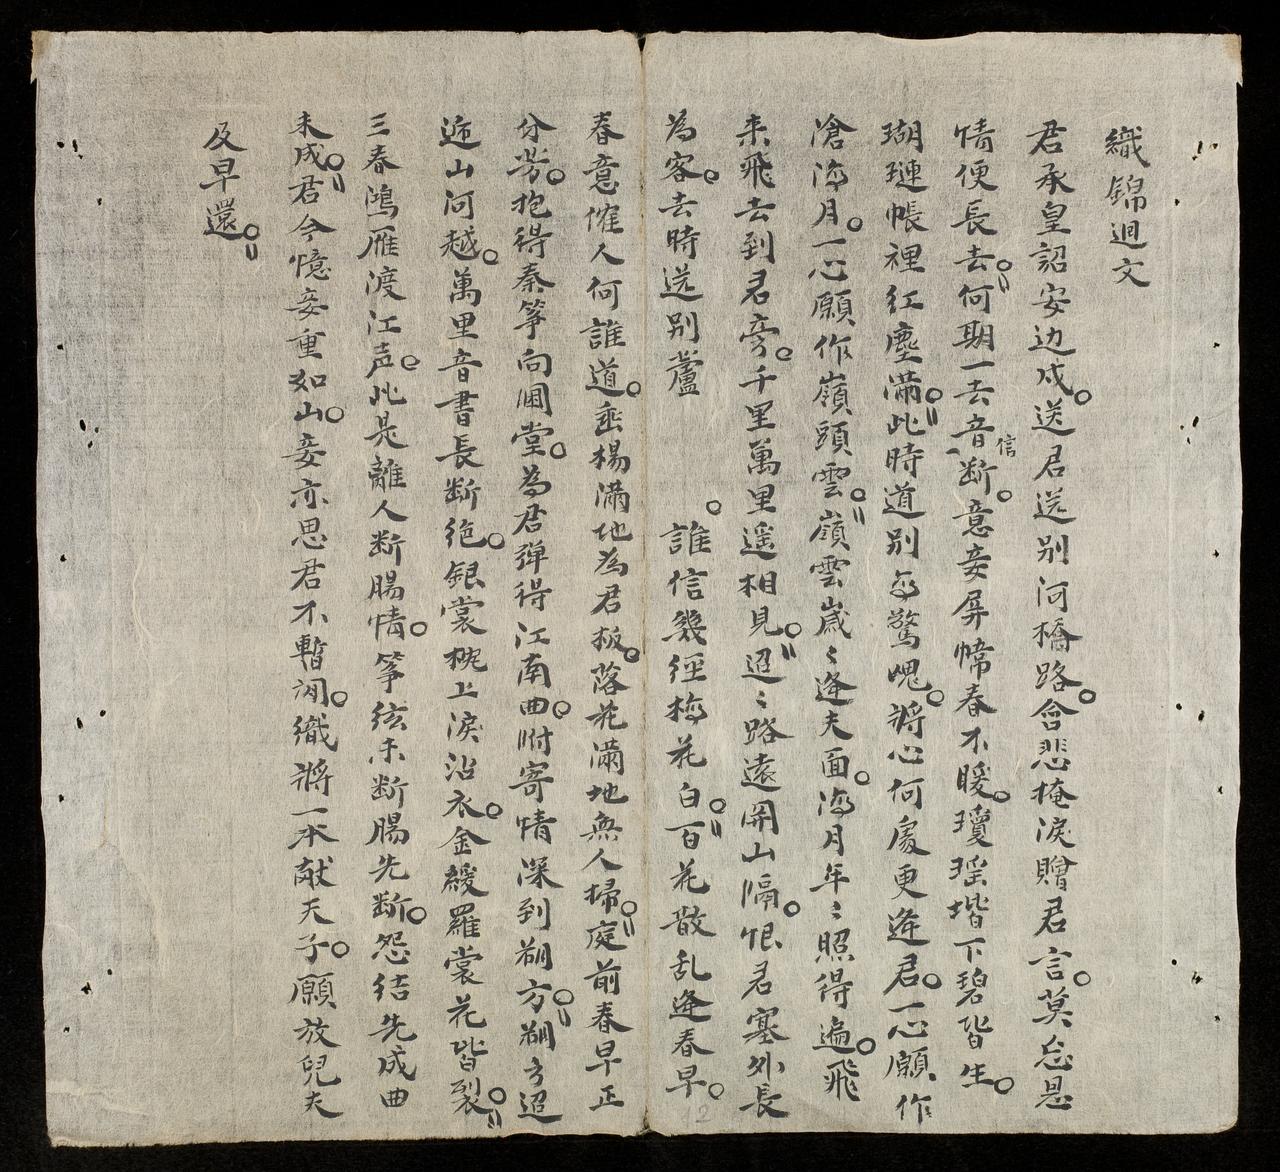 織錦迴文
君承皇詔安边戍。送君送别河橋路。會悲掩淚贈君言。莫忘恩
情便長去。何期一去音信断。意妾屏幃春不暖。瓊瑶堦下碧皆生。
瑚璉帳裡紅塵滿。此時道别每驚魂。將心何處更逢君。一心願作
滄海月。一心願作嶺頭雲。嶺雲歲〻逢夫面。海月年〻照得遍。飛
来飛去到君旁。千里萬里遥相見。迢〻路遠関山隔。恨君塞外長
為客。去時送别蘆 。誰信幾徑梅花白。百花散乱逢春早。
春意催人何誰道。垂楊滿地為君板。落花滿地無人掃。庭前春早正
分芳。抱得秦筝向圖堂。為君弹得江南曲。附寄情深到朔方。朔方迢
近山河越。萬里音書長断绝。銀裳枕上淚沾衣。金縷羅裳花皆裂。
三春鴻雁渡江声。此是離人断腸情。筝絃未断腸先断。怨結先成曲
未成。君今憶妾重如山。妾亦思君不暫闲。織將一本献天子。願放兒夫
及早還。